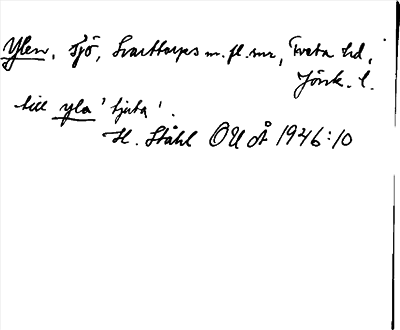 Ylen, sjö, Svarttorps m. fl. snr, Tveta hd,
Jönk. l.
till yla 'tjuta'.
H. Ståhl OUÅ 1946:10